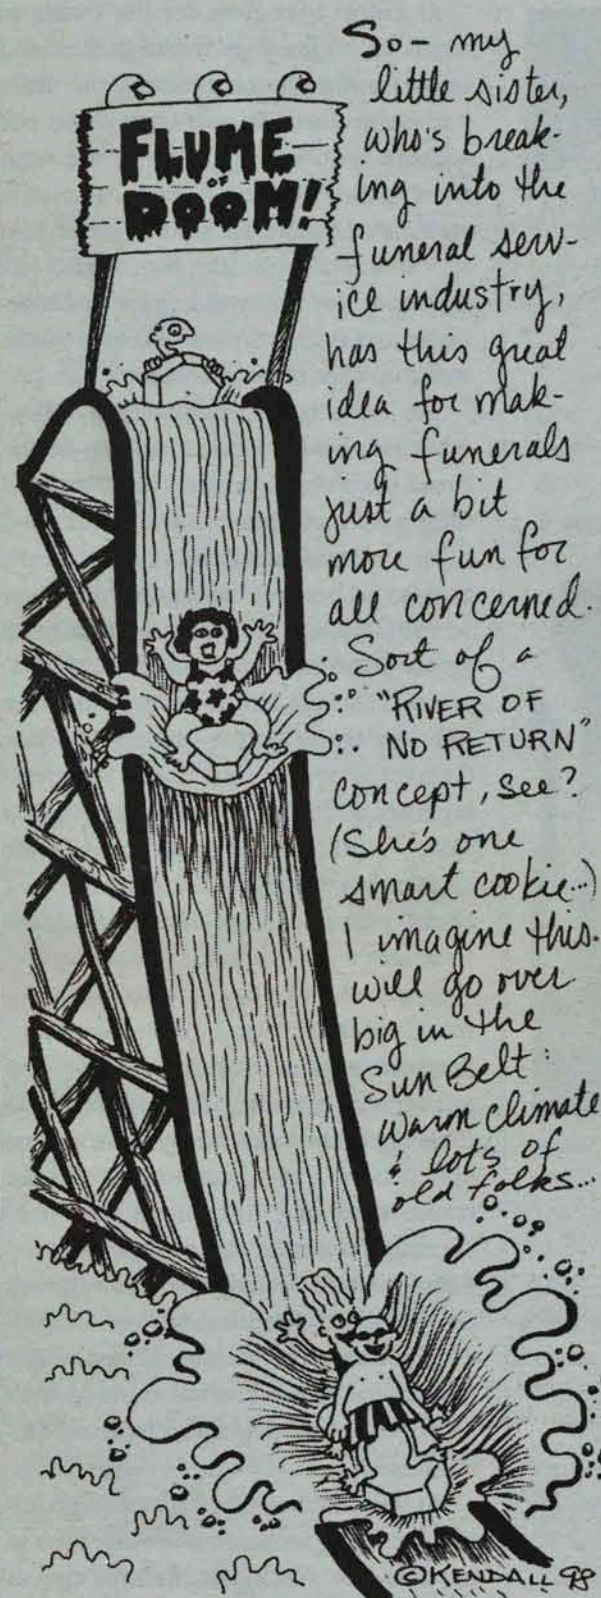 FLUME
OF
DOOM!
So- my
little sister,
who's break-
ing into the
funeral serv-
ice industry,
has this great
idea for mak-
ing funerals
just a bit
more fun for
all concerned.
Sort of a
"RIVER OF
NO RETURN"
concept, see?
(She's one
smart cookie...)
I imagine this
will go over
big in the
Sun Belt:
warm climate
& lots of
old folks...
©KENDALL 98